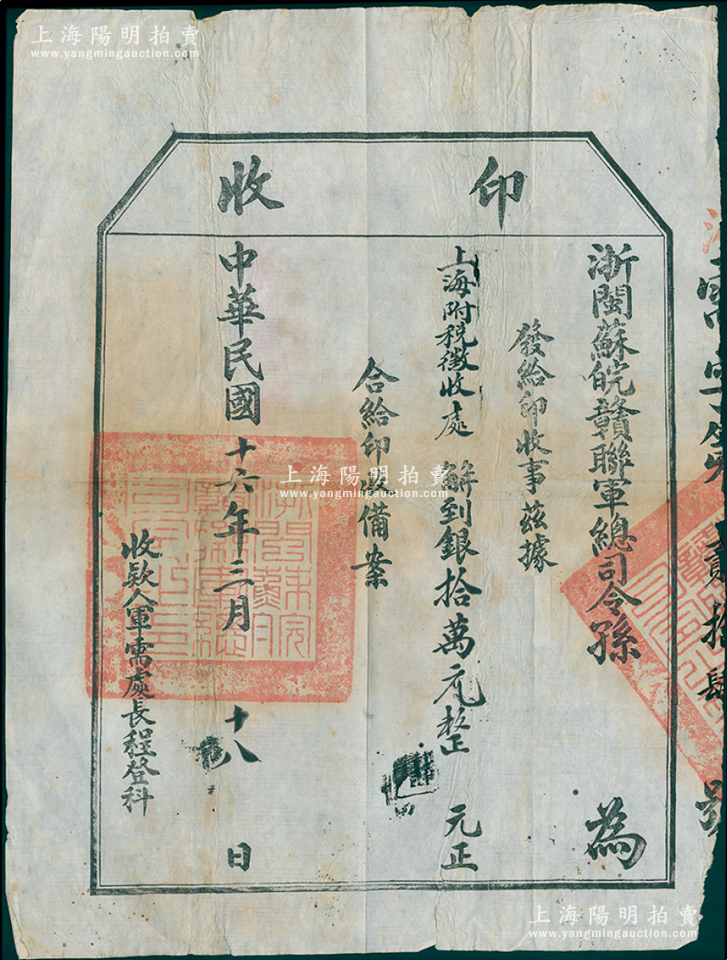 上海陽明拍賣
www.yangmingauction.com
印收
號
浙閩蘇皖贛聯軍總司令孫 為
發給印收事茲據
上海附稅徵收處 解到銀拾萬元整 元正
合給印收備案
中華民國十六年三月十八日
收款人軍需處長程登科
上海陽明拍賣
www.yangmingauction.com
上海陽明拍賣
www.yangmingauction.com